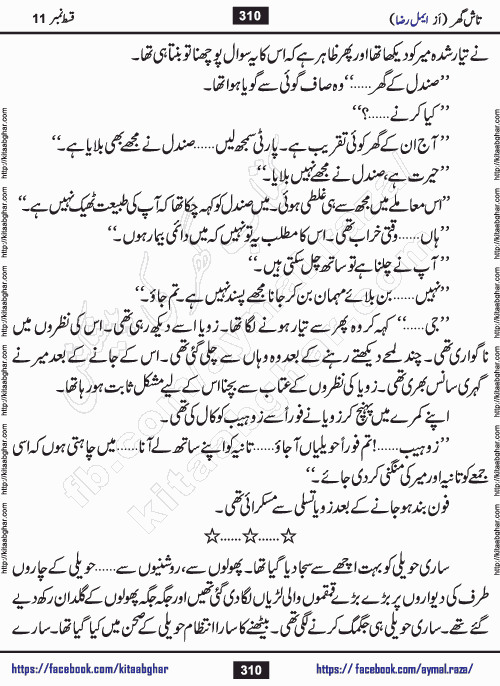 تاش گھر (از ایمل رضا) 310 قسط نمبر 11
نے تیار شدہ میر کو دیکھا تھا اور پھر ظاہر ہے کہ اس کا یہ سوال پوچھنا تو بنتا ہی تھا۔
”صندل کے گھر......“ وہ صاف گوئی سے گویا ہوا تھا۔
”کیا کرنے......؟“
”آج ان کے گھر کوئی تقریب ہے۔ پارٹی سمجھ لیں......صندل نے مجھے بھی بلایا ہے۔“
”حیرت ہے، صندل نے مجھے نہیں بلایا۔“
”اس معاملے میں مجھ سے ہی غلطی ہوئی۔ میں صندل کو کہہ چکا تھا کہ آپ کی طبیعت ٹھیک نہیں ہے۔“
”ہاں......وقتی خراب تھی۔ اس کا مطلب یہ تو نہیں کہ میں دائمی بیمار ہوں۔“
”آپ نے چلنا ہے تو ساتھ چل سکتی ہیں۔“
”نہیں......بن بلائے مہمان بن کر جانا مجھے پسند نہیں ہے۔ تم جاؤ۔“
”جی......“ کہہ کر وہ پھر سے تیار ہونے لگا تھا۔ زویا اسے دیکھ رہی تھی۔ اس کی نظروں میں
ناگواری تھی۔ چند لمحے دیکھتے رہنے کے بعد وہ وہاں سے چلی گئی تھی۔ اس کے جانے کے بعد میر نے
گہری سانس بھری تھی۔ زویا کی نظروں کے عتاب سے بچنا اس کے لیے مشکل ثابت ہو رہا تھا۔
اپنے کمرے میں پہنچ کر زویا نے فوراً سے زوہیب کو کال کی تھی۔
”زوہیب......! تم فوراً حویلیاں آ جاؤ......تانیہ کو اپنے ساتھ لے آنا......میں چاہتی ہوں کہ اسی
جمعے کو تانیہ اور میر کی منگنی کر دی جائے۔“
فون بند ہو جانے کے بعد زویا تسلی سے مسکرائی تھی۔
☆......☆......☆
ساری حویلی کو بہت اچھے سے سجا دیا گیا تھا۔ پھولوں سے، روشنیوں سے......حویلی کے چاروں
طرف کی دیواروں پر بڑے بڑے قمقموں والی لڑیاں لگا دی گئی تھیں اور جگہ جگہ پھولوں کے گلدان رکھ دیے
گئے تھے۔ ساری حویلی ہی جگمگ کرنے لگی تھی۔ بیٹھنے کا سارا انتظام حویلی کے صحن میں کیا گیا تھا۔ سارے
https://facebook.com/kitaabghar 310 https://facebook.com/aymal.raza/
http://kitaabghar.com http://kitaabghar.com http://kitaabghar.com http://kitaabghar.com http://kitaabghar.com
http://kitaabghar.com http://kitaabghar.com http://kitaabghar.com http://kitaabghar.com http://kitaabghar.com